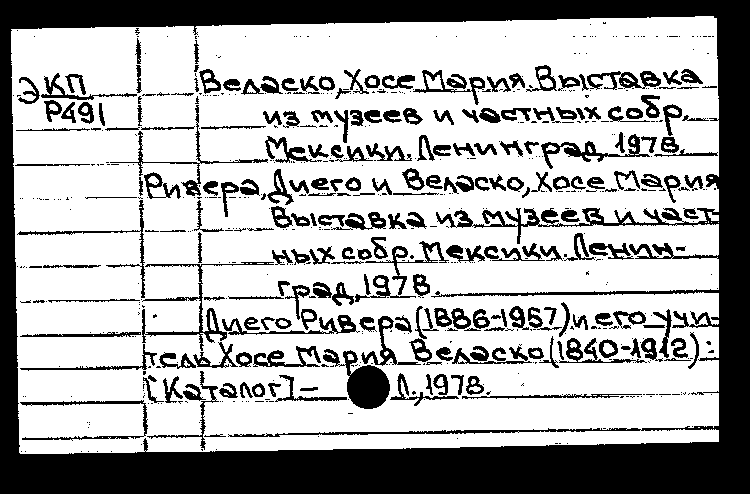 Э КП
Р491
Веласко, Хосе Мария. Выставка
из музеев и частных собр.
Мексики. Ленинград, 1978.
Ривера, Диего и Веласко, Хосе Мария
Выставка из музеев и част-
ных собр. Мексики. Ленин-
град, 1978.
Диего Ривера (1886-1957) и его учи-
тель Хосе Мария Веласко (1840-1912):
[Каталог] – Л., 1978.